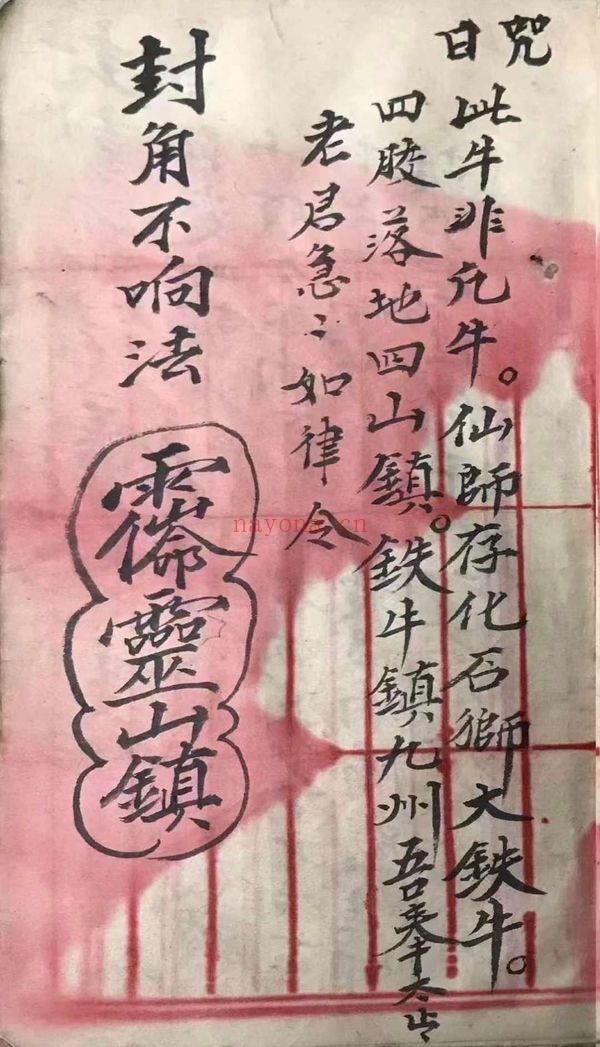 咒曰
此牛非凡牛。仙師存化石獅大鉄牛。
四肢落地四山鎮。鉄牛鎮九州吾奉太上
老君急〻如律令
封角不响法
靈山鎮
nayona.cn